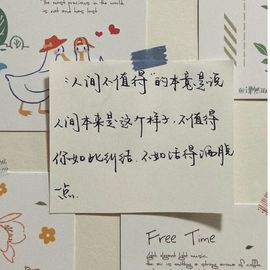 The most precious in the world
is not and has lost
“人间不值得”的本意是说
人间本来是这个样子，不值得
你如此纠结，不如活得洒脱
一点.
Free Time
Light elegant light music.